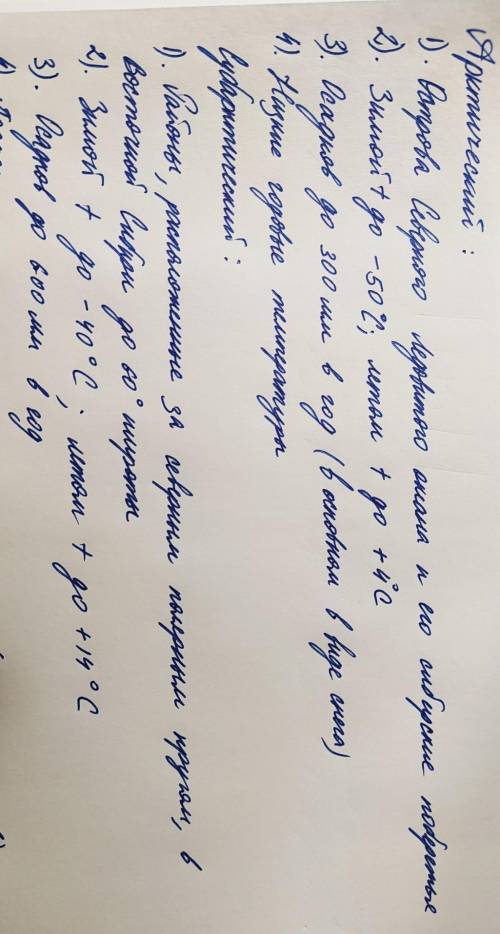 Арктический:
1). Острова Северного Ледовитого океана и его сибирские побережья
2). Зимой t до -50°C; летом t до +4°C
3). Осадков до 300 мм в год (в основном в виде снега)
4). Низкие годовые температуры
Субарктический:
1). Районы, расположенные за северным полярным кругом, в
восточной Сибири до 60° широты
2). Зимой t до -40°C; летом t до +14°C
3). Осадков до 600 мм в год
4).